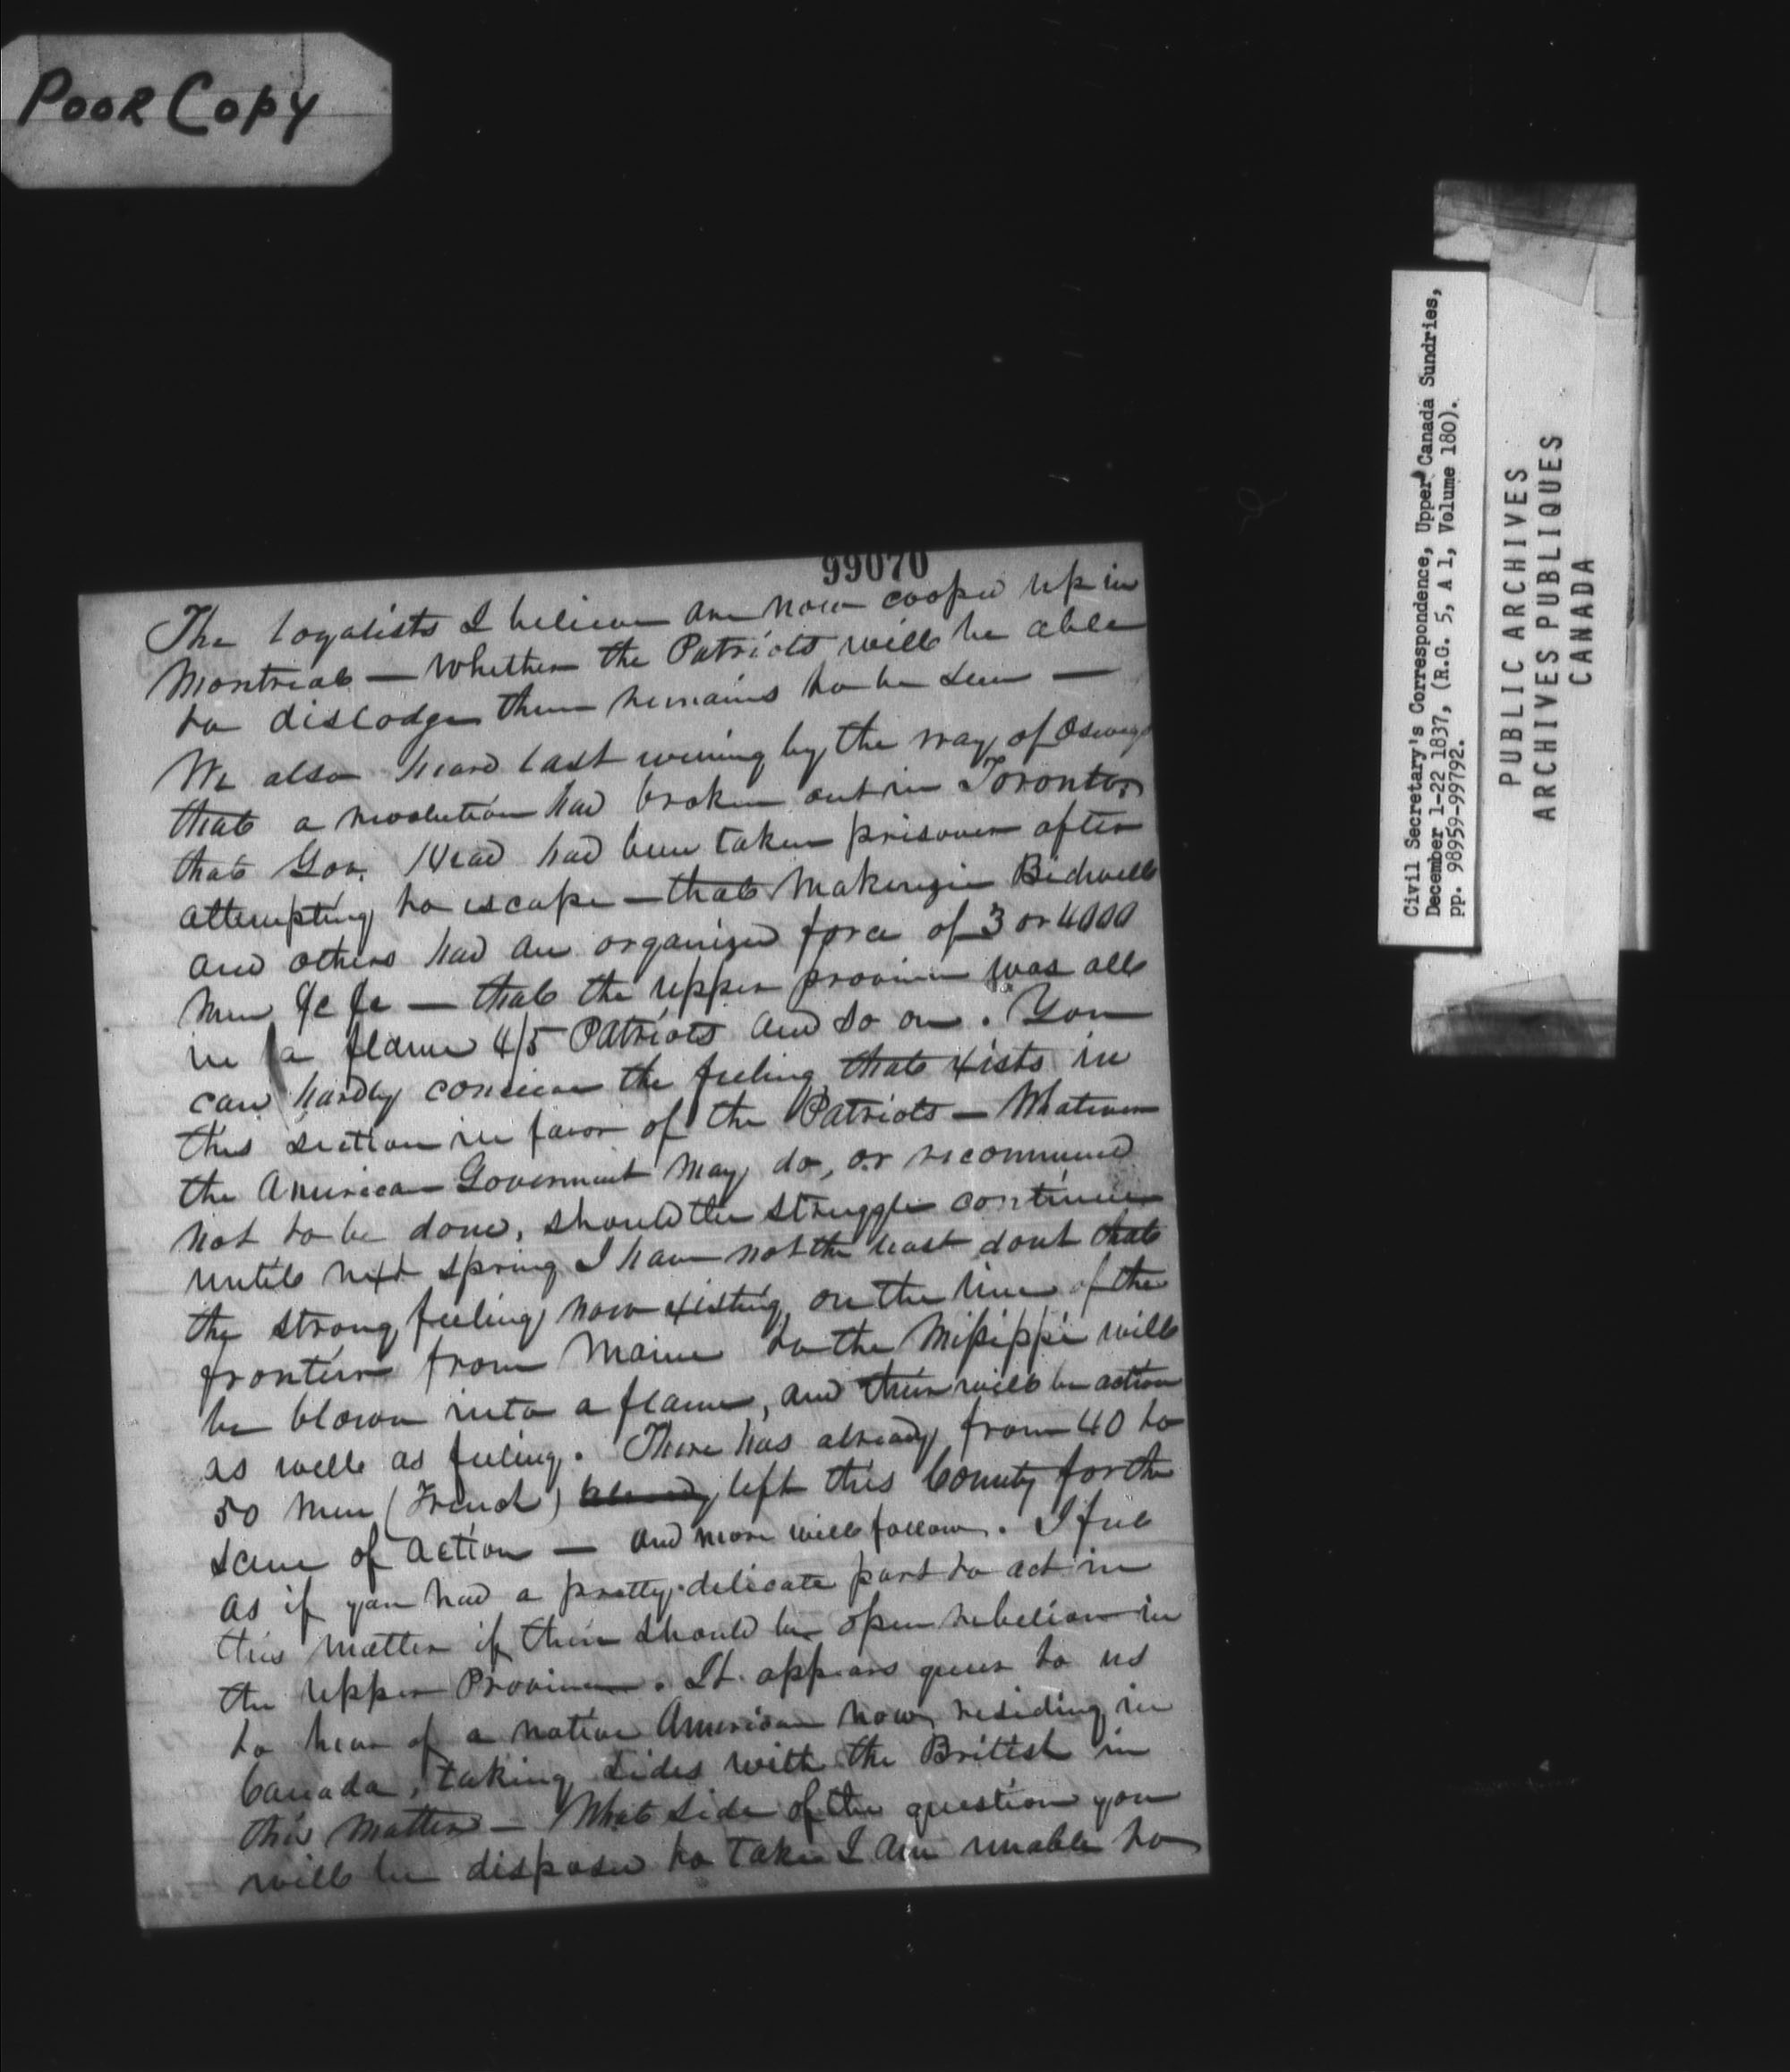 Poor Copy
99070
The loyalists I believe are now cooped up in
Montreal — Whether the Patriots will be able
to dislodge them remains to be seen —
We also heard last evening by the way of Oswego
that a revolution had broken out in Toronto
that Gov. Head had been taken prisoner after
attempting to escape — that Makenzie Bidwell
and others had an organized force of 3 or 4000
men &c &c — that the upper province was all
in a flame 4/5 Patriots and so on. You
can hardly conceive the feeling that exists in
this section in favor of the Patriots — Whatever
the American Goverment may do, or recommend
not to be done, should the struggle continue
until next spring I have not the least dout that
the strong feeling now existing on the line of the
frontier from Maine to the Missippi will
be blown into a flame, and their will be action
as well as feeling. There has already from 40 to
50 men (French) left this County for the
scene of action — and more will follow. I feel
as if you had a pretty delicate part to act in
this matter if their should be open rebelion in
the upper Province. It appears queer to us
to hear of a native American now residing in
Canada, taking sides with the Brittish in
this matter — What side of the question you
will be disposed to take I am unable to
Civil Secretary's Correspondence, Upper Canada Sundries,
December 1-22 1837, (R.G. 5, A 1, Volume 180).
pp. 98959-99792.
PUBLIC ARCHIVES
ARCHIVES PUBLIQUES
CANADA